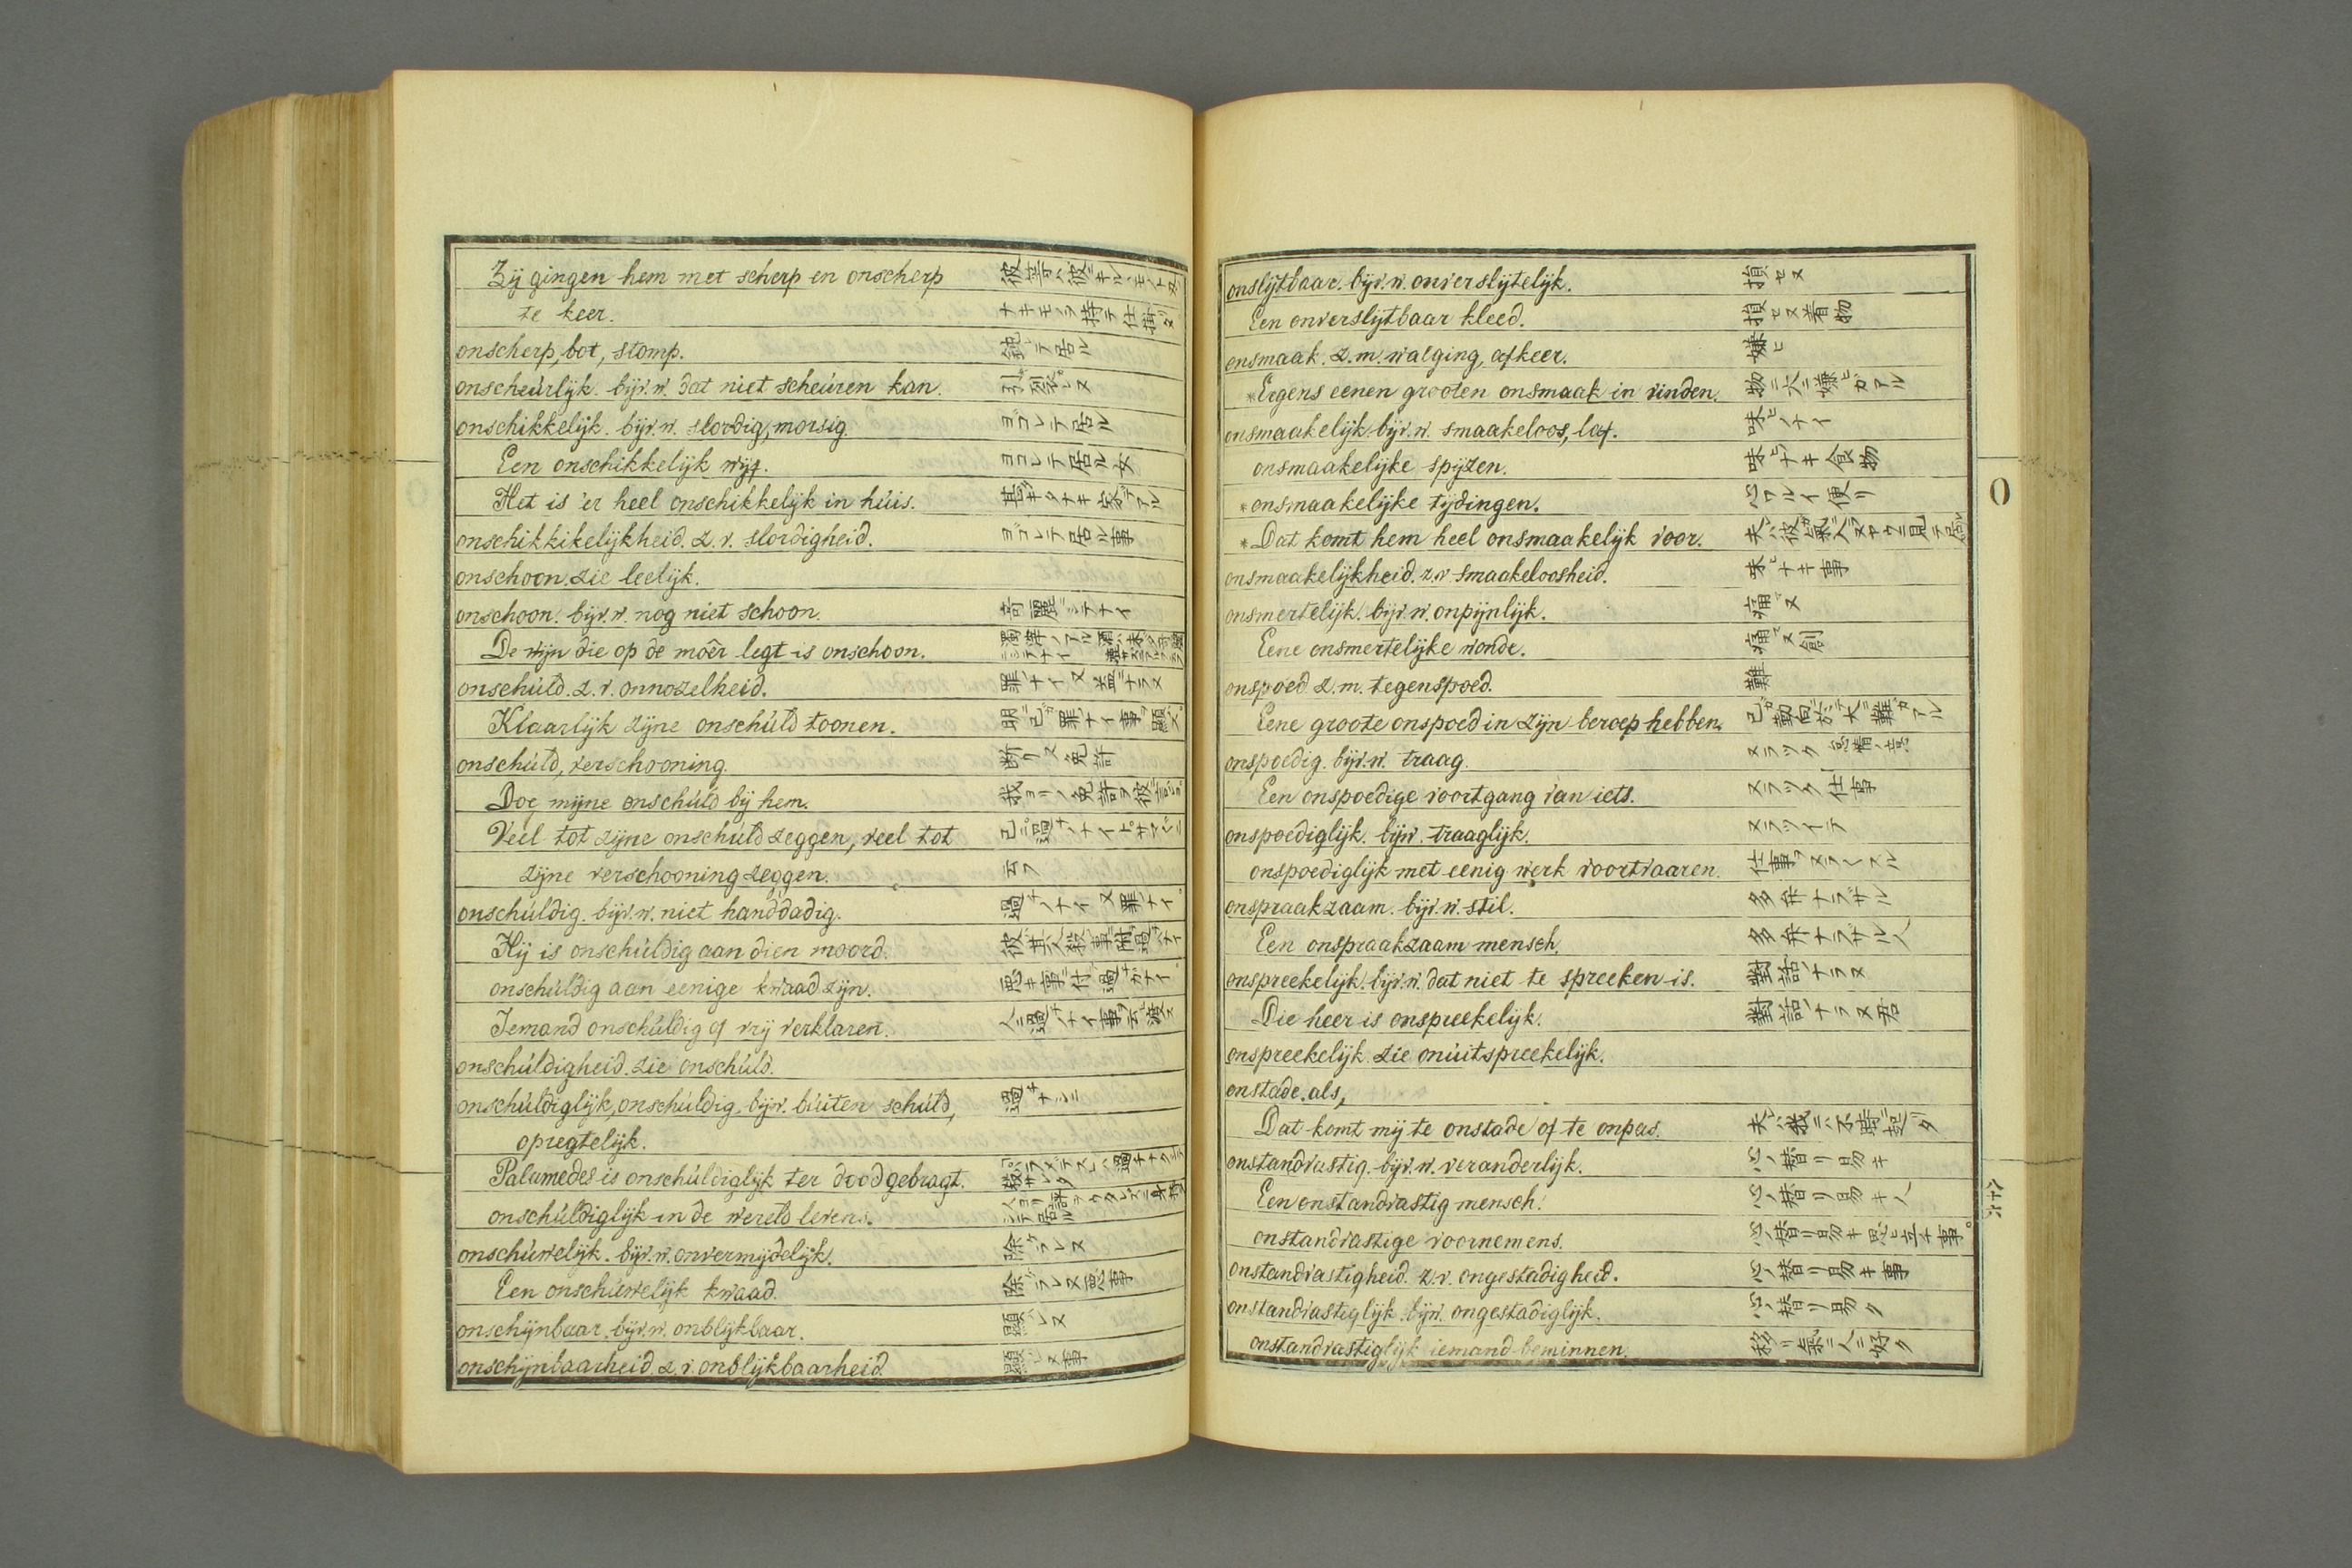 Zij gingen hem met scherp en onscherp
te keer.
onscherp, bot, stomp. 鈍テ居ル
onscheúrlijk. bijv. w. dat niet scheúren kan. 引裂レヌ
onschikkelijk. bijv. w. slordig, morsig. ヨゴレテ居ル
Een onschikkelijk wijf. ヨゴレテ居ル女
Het is 'er heel onschikkelijk in húis.
onschikkikelijkheid. z. v. slordigheid. ヨゴレテ居ル事
onschoon. zie leelijk.
onschoon. bijv. w. nog niet schoon. 奇麗ニシテナイ
De wijn die op de moêr legt is onschoon.
onschúld. z. v. onnozelheid.
Klaarlijk zijne onschúld toonen.
onschúld, verschooning. 断リ又免許
Doe mijne onschúld bij hem.
Veel tot zijne onschúld zeggen, veel tot
zijne verschooning zeggen. 云フ
onschúldig. bijv. w. niet handdadig. 過ナイ又罪ナイ
Hij is onschúldig aan dien moord.
onschúldig aan eenige kwaad zijn.
Iemand onschúldig of vrij verklaren.
onschúldigheid. zie onschúld.
onschúldiglijk, onschúldig. bijv. búiten schúld, 過ナシニ
opregtelijk.
Palamedes is onschúldiglijk ter dood gebragt.
onschúldiglijk in de wereld levens.
onschúwelijk. bijv. w. onvermijdelijk. 除ケラレヌ
Een onschúwelijk kwaad. 除ケラレヌ悪事
onschijnbaar. bijv. w. onblijkbaar. 顕レヌ
onschijnbaarheid. z. v. onblijkbaarheid. 顕レヌ事
onslijtbaar. bijv. w. onverslijtelijk. 損セヌ
Een onverslijtbaar kleed. 損セヌ着物
onsmaak. z. m. walging, afkeer. 嫌ヒ
*Ergens eenen grooten onsmaak in vinden. 物ニ大ニ嫌ヒガアル
onsmaakelijk. bijv. w. smaakeloos, laf. 味ヒノナイ
onsmaakelijke spijzen. 味ヒナキ食物
*onsmaakelijke tijdingen. 心ワルイ便リ
*Dat komt hem heel onsmaakelijk voor.
onsmaakelijkheid. z. v. smaakeloosheid. 味ヒナキ事
onsmertelijk. bijv. w. onpijnlijk. 痛マヌ
Eene onsmertelijke wonde. 痛マヌ創
onspoed z. m. tegenspoed. 難
Eene groote onspoed in zijn beroep hebben.
onspoedig. bijv. w. traag. ヌラツク
Een onspoedige voortgang van iets. ヌラツク仕事
onspoediglijk. bijv. traaglijk. ヌラツイテ
onspoediglijk met eenig werk voortvaaren.
onspraakzaam. bijv. w. stil. 多弁ナラザル
Een onspraakzaam mensch. 多弁ナラザル人
onspreekelijk. bijv. w. dat niet te spreeken is. 對話ナラヌ
Die heer is onspreekelijk. 對話ナラヌ君
onspreekelijk. zie onúitspreekelijk.
onstade. als,
Dat komt mij te onstade of te onpas.
onstandvastig. bijv. w. veranderlijk. 心ノ替リ易キ
Een onstandvastig mensch. 心ノ替リ易キ人
onstandvastige voornemens. 心ノ替リ易キ思ヒ立チ事
onstandvastigheid. z. v. ongestadigheid. 心ノ替リ易キ事
onstandvastiglijk. bijv. ongestadiglijk. 心ノ替リ易ク
onstandvastiglijk iemand beminnen. 移リ氣ニ人ニ好ク
O